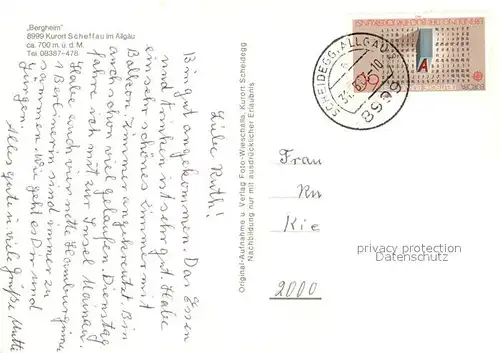 „Bergheim"
8999 Kurort Scheffau im Allgäu
ca. 700 m. ü. d. M.
Tel. 08387-478
Liebe Ruth!
Bin gut angekommen. Das Essen
und trinken ist sehr gut. Habe
ein sehr schönes Zimmer mit
Balkon Zimmer angekreutzt. Bin
auch schon viel gelaufen. Dienstag
fahre ich mit zur Insel Mainau.
Habe auch vier nette Hamburginnen
1 Berlinerin sind immer zu
sammen. Wie geht es Dir und
Jungen.
Alles gute u viele Grüße Mutti
Original-Aufnahme u. Verlag Foto-Wieschalla, Kurort Scheidegg
Nachbildung nur mit ausdrücklicher Erlaubnis
SCHEIDEGG, ALLGÄU
8999
Frau
Kie
2000
privacy protection
Datenschutz